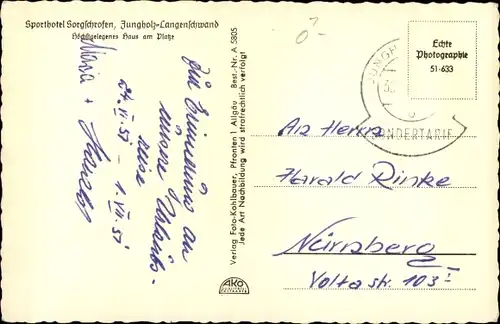 Sporthotel Sorgschrofen, Jungholz-Langenschwand
Höchstgelegenes Haus am Platze
Zur Erinnerung an
unsere Urlaubs-
reise
24. VI. 57 - 1. VII. 57
Maria +
Verlag Foto-Kohlbauer, Pfronten 1 Allgäu Best.-Nr. A 5805
Jede Art Nachbildung wird strafrechtlich verfolgt
AKO
Echte
Photographie
51-633
JUNGH
SONDERTARIF
An Herrn
Harald Rinke
Nürnberg
Volta str. 103 I